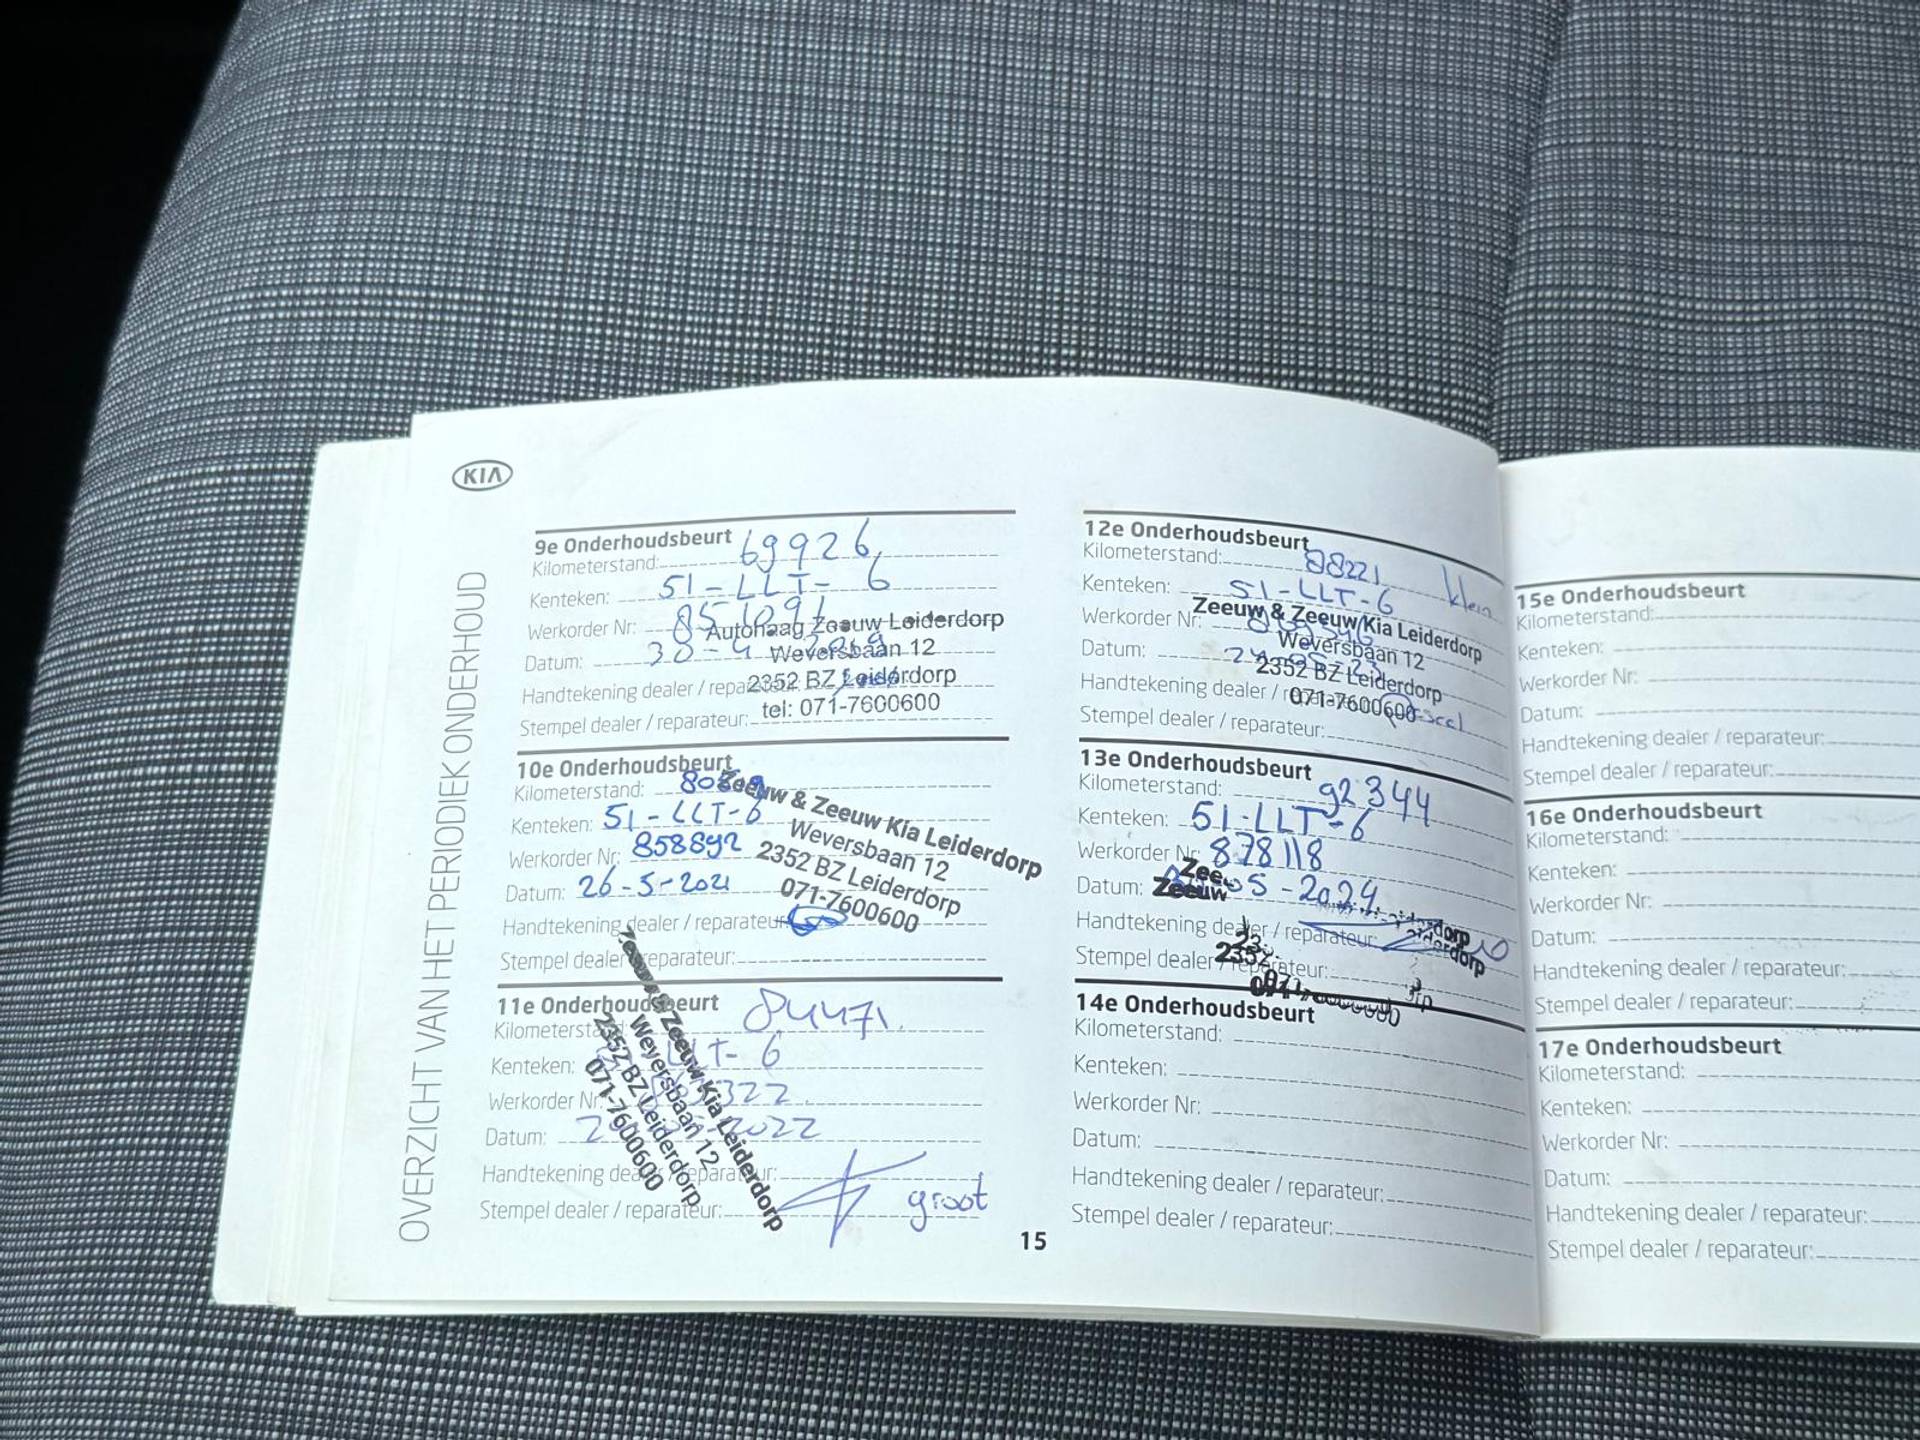 KIA
OVERZICHT VAN HET PERIODIEK ONDERHOUD
9e Onderhoudsbeurt
Kilometerstand: 69926
Kenteken: 51-LLT-6
Werkorder Nr: 851091
Datum: 30-4
Handtekening dealer / reparateur:
Stempel dealer / reparateur:
Autohaag Zeeuw Leiderdorp
Weversbaan 12
2352 BZ Leiderdorp
tel: 071-7600600
10e Onderhoudsbeurt
Kilometerstand:
Kenteken: 51-LLT-6
Werkorder Nr: 858892
Datum: 26-5-2021
Handtekening dealer / reparateur:
Stempel dealer / reparateur:
Zeeuw & Zeeuw Kia Leiderdorp
Weversbaan 12
2352 BZ Leiderdorp
071-7600600
11e Onderhoudsbeurt
Kilometerstand: 84471
Kenteken: LLT-6
Werkorder Nr:
Datum: 2022
Handtekening dealer / reparateur:
Stempel dealer / reparateur: groot
Zeeuw & Zeeuw Kia Leiderdorp
Weversbaan 12
2352 BZ Leiderdorp
071-7600600
15
12e Onderhoudsbeurt
Kilometerstand: 88221 klein
Kenteken: 51-LLT-6
Werkorder Nr:
Datum:
Handtekening dealer / reparateur:
Stempel dealer / reparateur:
Zeeuw & Zeeuw Kia Leiderdorp
Weversbaan 12
2352 BZ Leiderdorp
071-7600600
13e Onderhoudsbeurt
Kilometerstand: 92344
Kenteken: 51-LLT-6
Werkorder Nr: 878118
Datum: 05-2024
Handtekening dealer / reparateur:
Stempel dealer / reparateur:
14e Onderhoudsbeurt
Kilometerstand:
Kenteken:
Werkorder Nr:
Datum:
Handtekening dealer / reparateur:
Stempel dealer / reparateur:
15e Onderhoudsbeurt
Kilometerstand:
Kenteken:
Werkorder Nr:
Datum:
Handtekening dealer / reparateur:
Stempel dealer / reparateur:
16e Onderhoudsbeurt
Kilometerstand:
Kenteken:
Werkorder Nr:
Datum:
Handtekening dealer / reparateur:
Stempel dealer / reparateur:
17e Onderhoudsbeurt
Kilometerstand:
Kenteken:
Werkorder Nr:
Datum:
Handtekening dealer / reparateur:
Stempel dealer / reparateur: